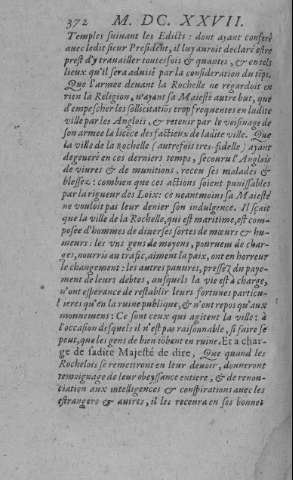 372 M. DC. XXVII.
Temples suiuant les Edicts : dont ayant conferé
auec ledit sieur President, il luy auroit declaré estre
prest d'y trauailler toutesfois & quantes, & en tels
lieux qu'il sera aduisé par la consideration du tẽps.
Que l'armee deuant la Rochelle ne regardoit en
rien la Religion, n'ayant sa Maiesté autre but, que
d'empescher les sollicitations trop frequentes en ladite
ville par les Anglois, & retenir par le voisinage de
son armee la licẽce des factieux de ladite ville. Que
la ville de la Rochelle (autrefois tres-fidelle) ayant
degeneré en ces derniers temps, secouru l'Anglois
de viures & de munitions, receu ses malades &
blessez : combien que ces actions soient punissables
par la rigueur des Loix : ce neantmoins sa Maiesté
ne vouloit pas leur denier son indulgence. Il sçait
que la ville de la Rochelle, qui est maritime, est com-
posee d'hommes de diuerses sortes de mœurs & hu-
meurs : les vns gens de moyens, pourueus de char-
ges, nourris au trafic, aiment la paix, ont en horreur
le changement : les autres pauures, pressez du paye-
ment de leurs debtes, ausquels la vie est à charge,
n'ont esperance de restablir leurs fortunes particu-
lieres qu'en la ruine publique, & n'ont repos qu'aux
mouuemens : Ce sont ceux qui agitent la ville : à
l'occasion desquels il n'est pas raisonnable, si faire se
peut, que les gens de bien tõbent en ruine. Et a char-
gé sadite Majesté de dire, Que quand les
Rochelois se remettront en leur deuoir, donneront
tesmoignage de leur obeyssance entiere, & de renon-
ciation aux intelligences & conspirations auec les
estrangers & autres, il les receura en ses bonnes